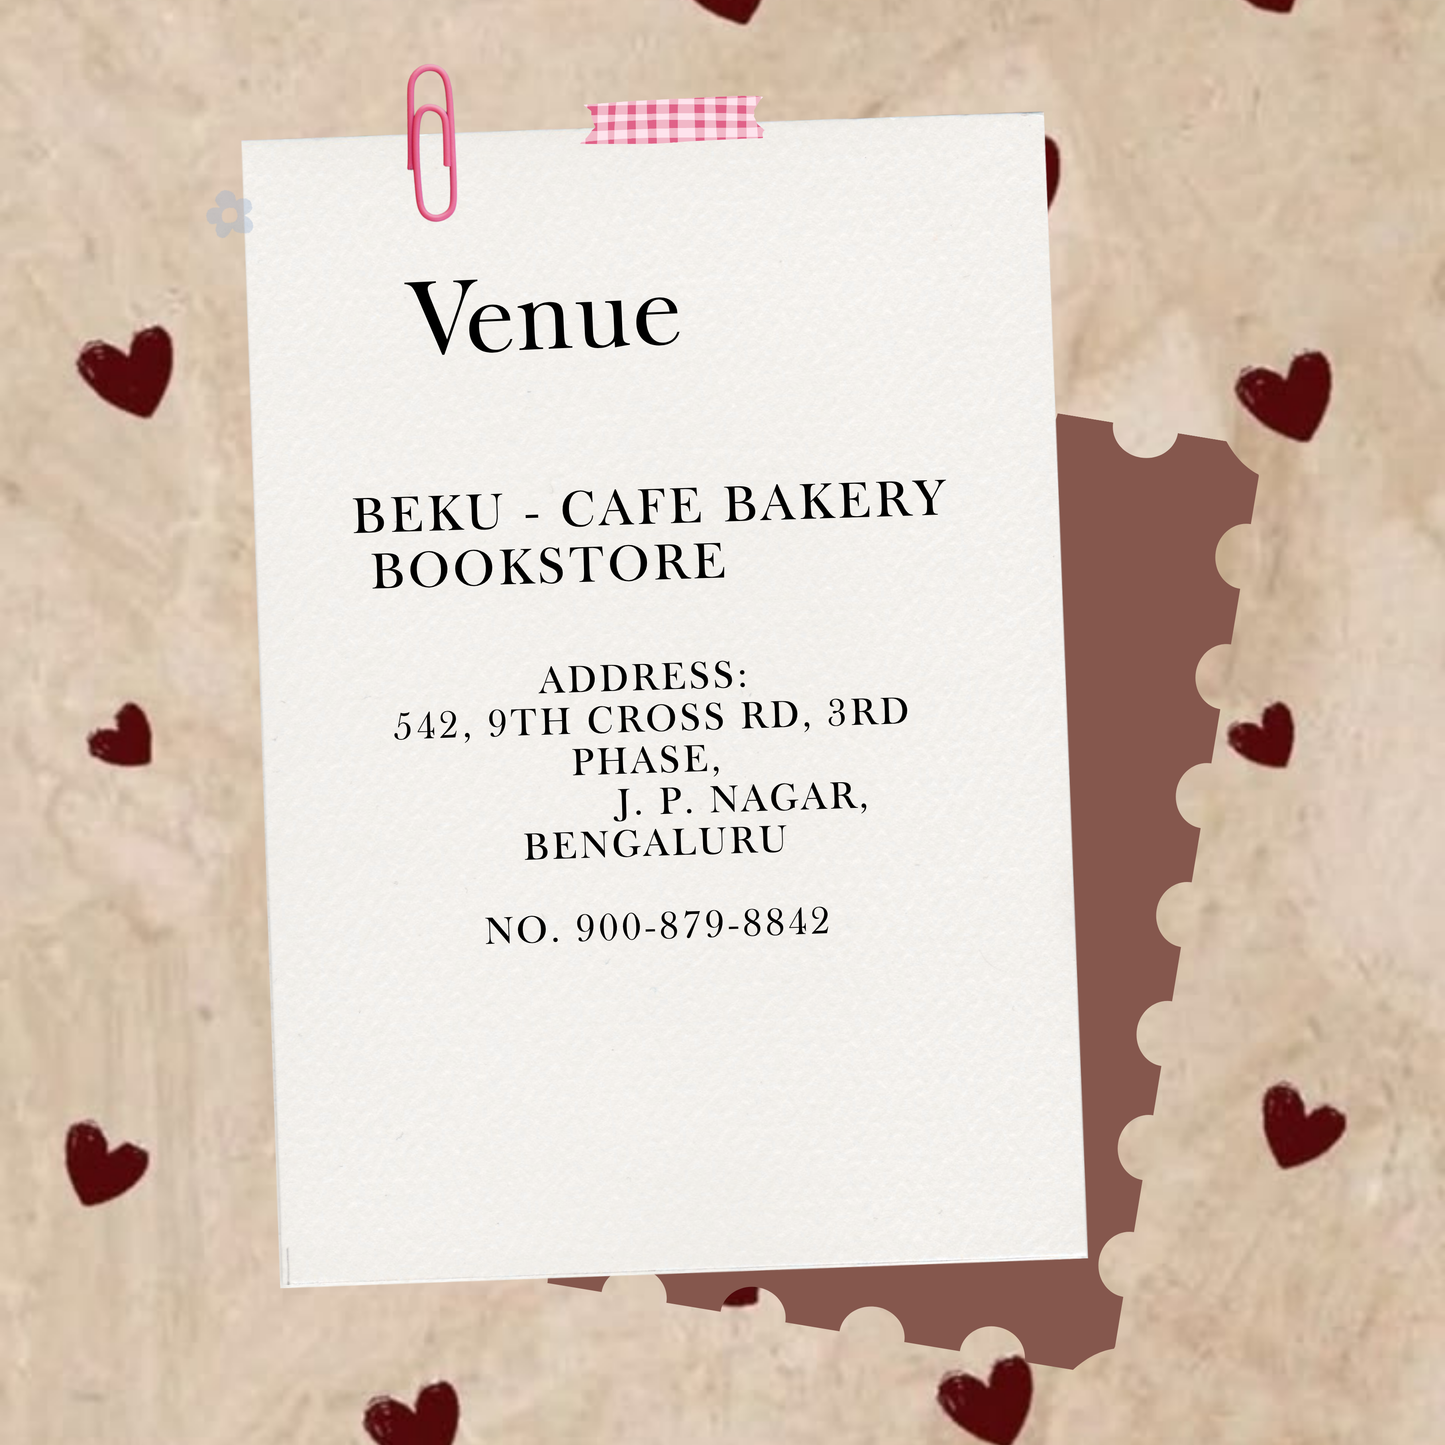 Venue
BEKU - CAFE BAKERY
BOOKSTORE
ADDRESS:
542, 9TH CROSS RD, 3RD
PHASE,
J. P. NAGAR,
BENGALURU
NO. 900-879-8842